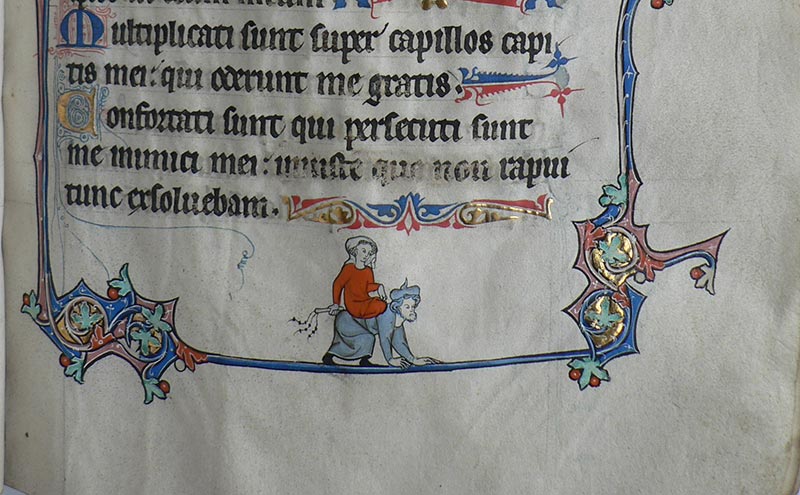 Multiplicati sunt super capillos capi
tis mei: qui oderunt me gratis.
Confortati sunt qui persecuti sunt
me inimici mei: iniuste que non rapui
tunc exsoluebam.